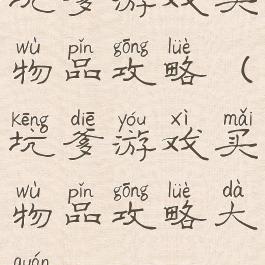 坑爹游戏买
wù pǐn gōng lüè
物品攻略（
kēng diē yóu xì mǎi
坑爹游戏买
wù pǐn gōng lüè dà
物品攻略大
quán